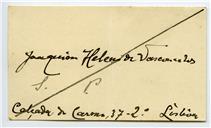 Joaquim Heleno de Vasconcelos
S. P.
Calçada do Carmo, 37-2º Lisboa